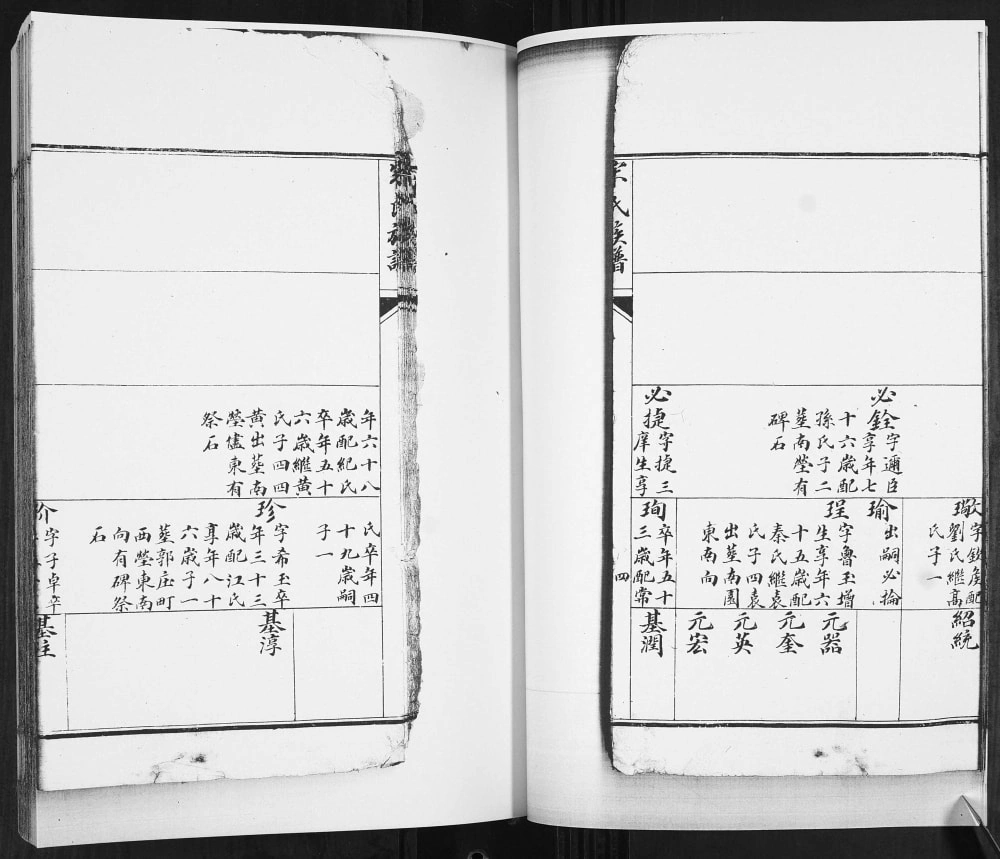 必銓
字邇臣
享年七
十六歲配
孫氏子二
塟南塋有
碑石
必捷
字捷三
庠生享
字欽虞配
劉氏繼高
氏子一
瑜
出嗣必掄
珵
字魯玉增
生享年六
十五歲配
秦氏繼袁
氏子四袁
出塟南園
東南向
珣
卒年五十
三歲配常
紹統
元器
元奎
元英
元宏
基潤
氏族譜
四
氏族譜
年六十八
歲配紀氏
卒年五十
六歲繼黃
氏子四四
黃出塟南
塋儘東有
祭石
氏卒年四
十九歲嗣
子一
珍
字希玉卒
年三十三
歲配江氏
享年八十
六歲子一
塟郭庄町
西塋東南
向有碑祭
石
字子卓卒
基淳
基